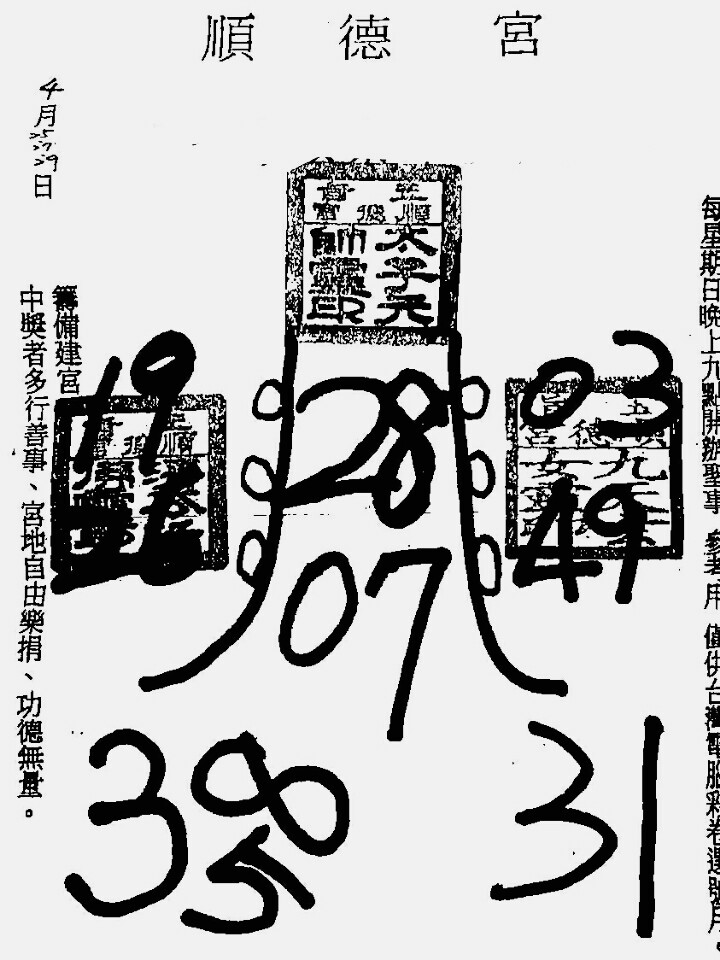 順德宮
4月25 27 29日
每星期日晚上九點開辦聖事 參考用 僅供台灣電腦彩卷選號用。
太子元
帥靈印
籌備建宮
中獎者多行善事、宮地自由樂捐、功德無量。
19
28
03
26
49
07
38
5
31